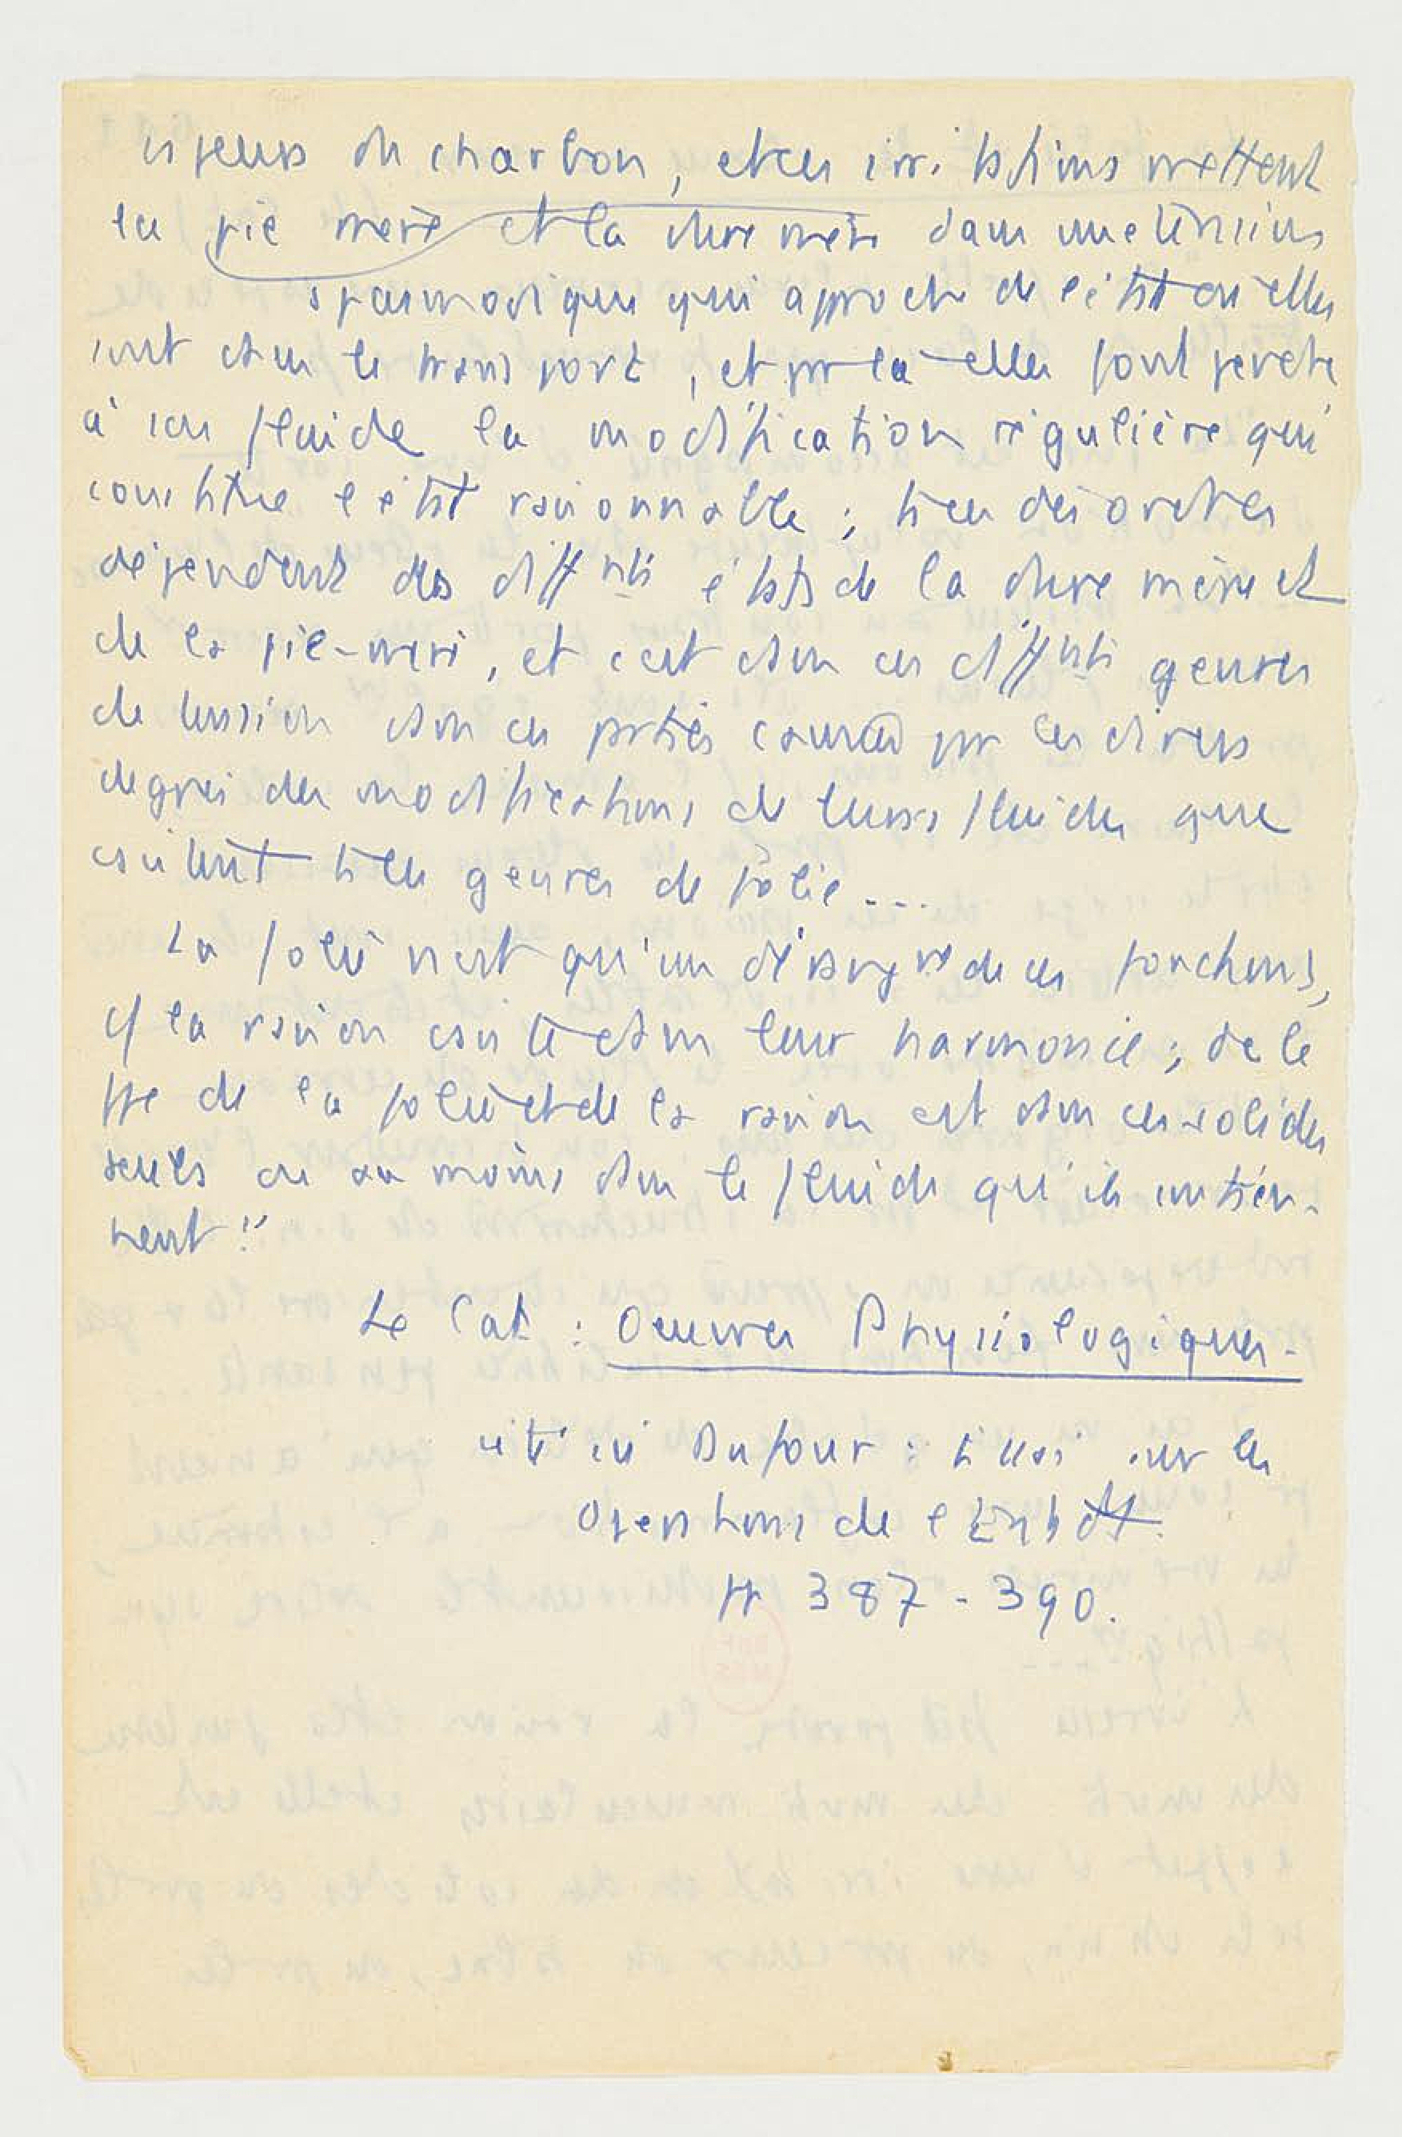 vapeurs du charbon, et ces irritations mettent
la pie mère et la dure mère dans une tension
spasmodique qui approche de l'état où elles
sont dans le transport, et par là elles font perdre
à son fluide la modification régulière qui
constitue l'état raisonnable ; des ordres
dépendent des diffts états de la dure mère et
de la pie-mère, et c'est dans ces diffts genres
de tension dans ces parties causées par les divers
degrés des modifications de leurs fluides que
consistent genres de folie ....
La folie n'est qu'un de ces fonctions,
cf la raison consiste dans leur harmonie ; de le
de la folie et de la raison est dans ces solides
seuls ou au moins dans le fluide qu'ils contien-
nent !"
Le Cat : Oeuvres Physiologiques.
cité in Dufour : Essai sur les
Opérations de l'Entdt.
pp 387 - 390.